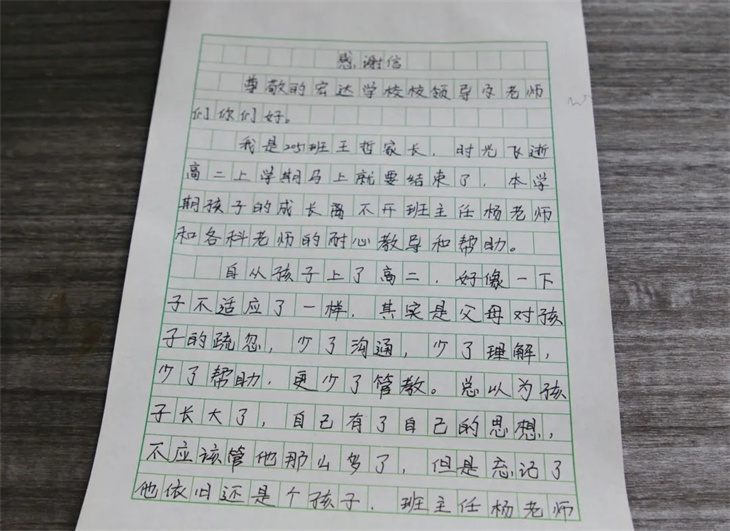 感谢信
尊敬的宏达学校校领导和老师
们你们好。
我是205班王哲家长，时光飞逝
高二上学期马上就要结束了，本学
期孩子的成长离不开班主任杨老师
和各科老师的耐心教导和帮助。
自从孩子上了高二，好像一下
子不适应了一样，其实是父母对孩
子的疏忽，少了沟通，少了理解，
少了帮助，更少了管教。总以为孩
子长大了，自己有了自己的思想，
不应该管他那么多了，但是忘记了
他依旧还是个孩子．班主任杨老师